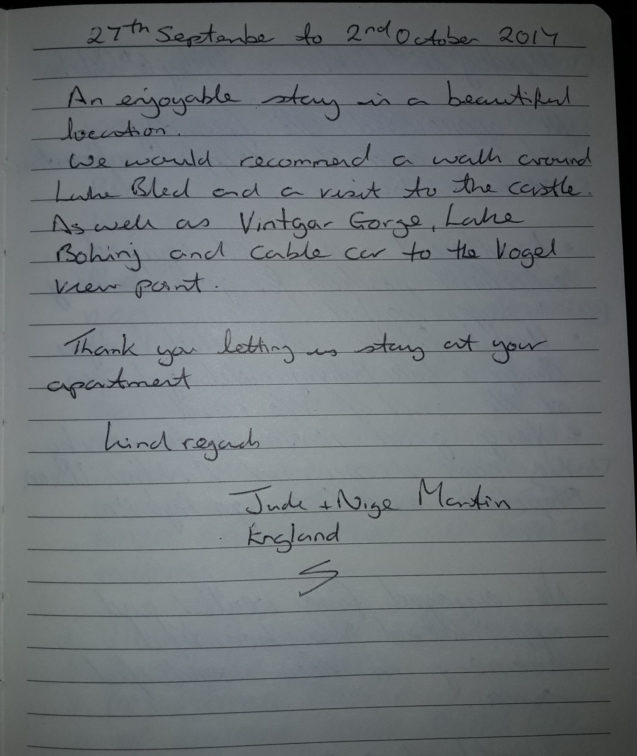 27th September to 2nd October 2014
An enjoyable stay in a beautiful
location.
We would recommend a walk around
Lake Bled and a visit to the castle.
As well as Vintgar Gorge, Lake
Bohinj and cable car to the Vogel
view point.
Thank you letting us stay at your
apartment
kind regards
Jude + Nige Martin
England